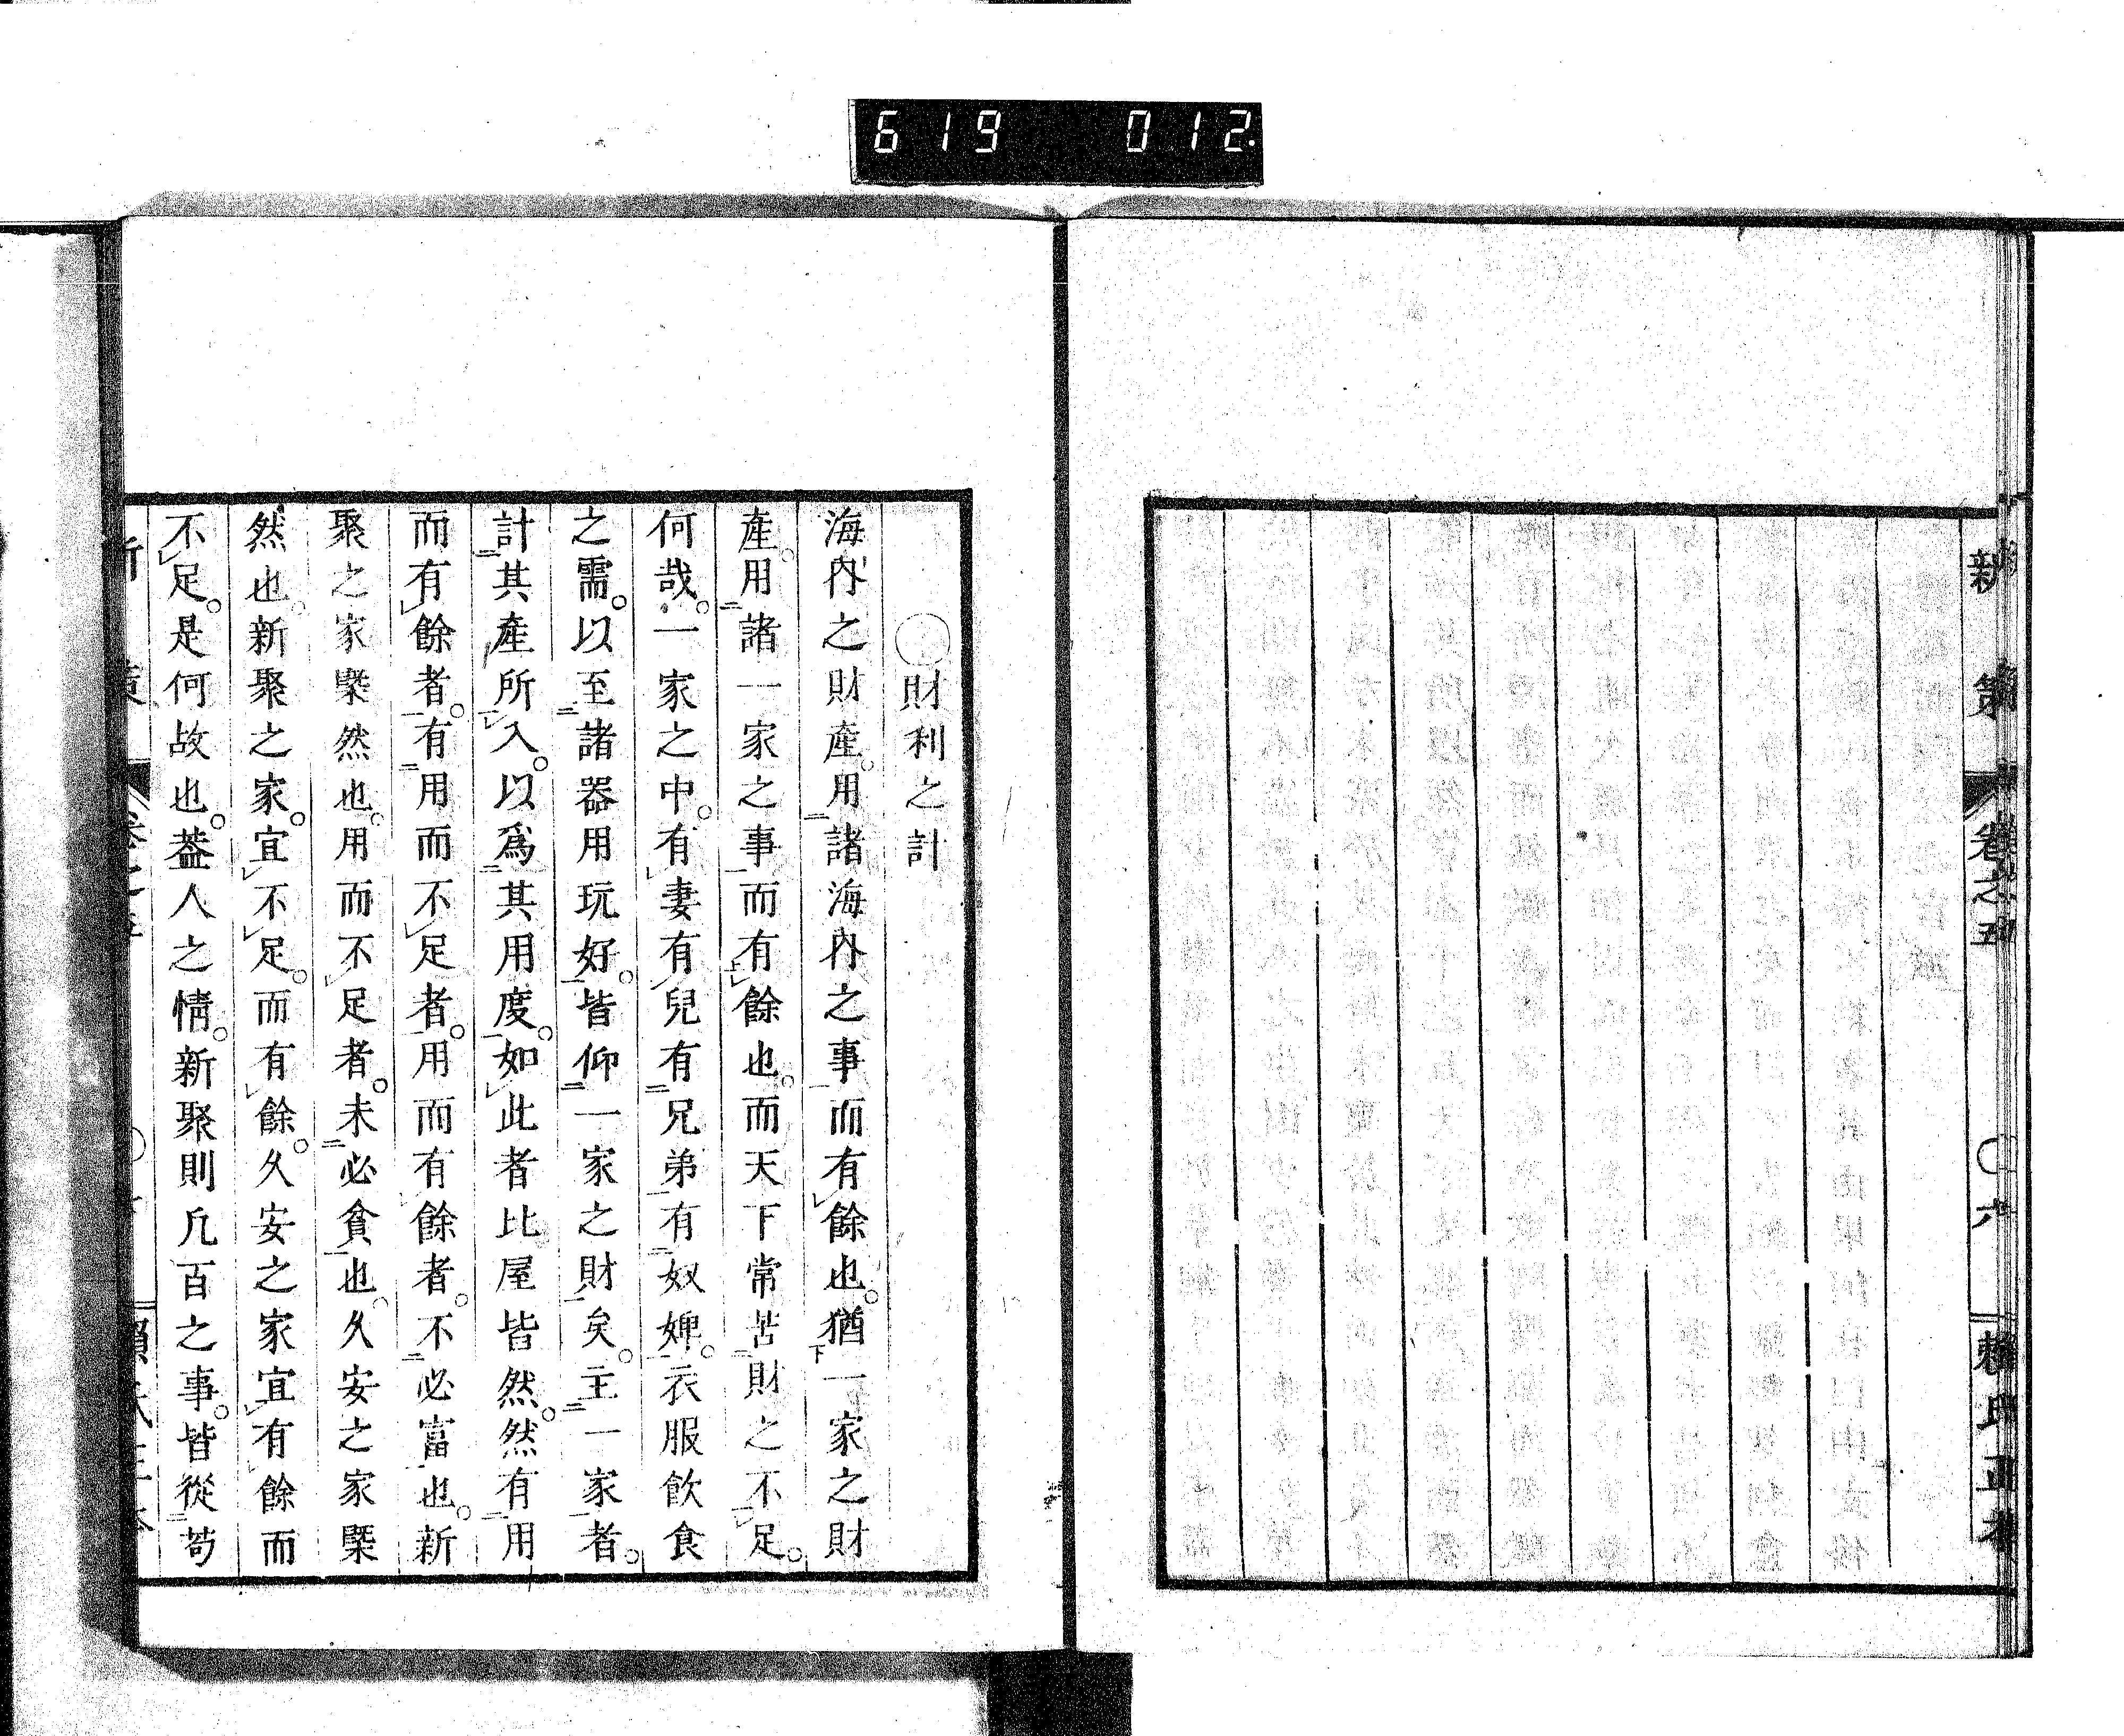 619 012.
新策
卷之五
〇六
賴氏正本
〇財利之計
海內之財產。用諸海內之事而有餘也。猶一家之財
產。用諸一家之事而有餘也。而天下常苦財之不足。
何哉。一家之中。有妻有兒有兄弟有奴婢。衣服飲食
之需。以至諸器用玩好。皆仰一家之財矣。主一家者。
計其產所入。以爲其用度。如此者比屋皆然。然有用
而有餘者。有用而不足者。用而有餘者。不必富也。新
聚之家槩然也。用而不足者。未必貧也。久安之家槩
然也。新聚之家。宜不足。而有餘。久安之家宜有餘而
不足。是何故也。葢人之情。新聚則凡百之事。皆從苟